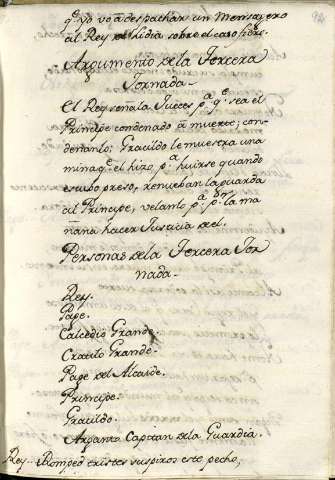 qᵉ yo vo â despachar un mensagero
al Rey de Lidia sobre el caso fiero.
Argumento de la Tercera
Jornada.
El Rey señala Jueces pᵃ qᵉ sea el
Principe condenado â muerte; con-
denanlo; Gravildo le muestra una
mina qᵉ el hizo pᵃ huirse quando
estubo preso, renueban la guarda
al Principe, velanlo pᵃ la ma-
ñana hacer Justicia de el.
Personas de la Tercera Jor-
nada.
Rey.
Page.
Calcedio Grande.
Cratilo Grande.
Page del Alcaide.
Principe.
Gravildo.
Capitan de la Guardia.
Rey.. Romped tristes suspiros este pecho,